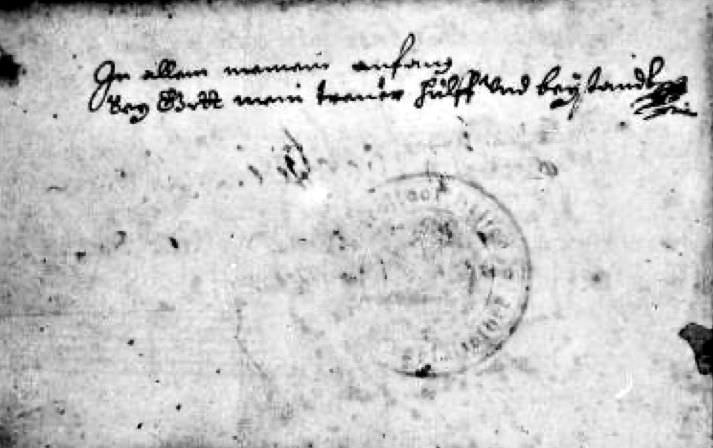 In allem meinem anfang
Sey Gott mein trewer hülff vnd beÿstandt